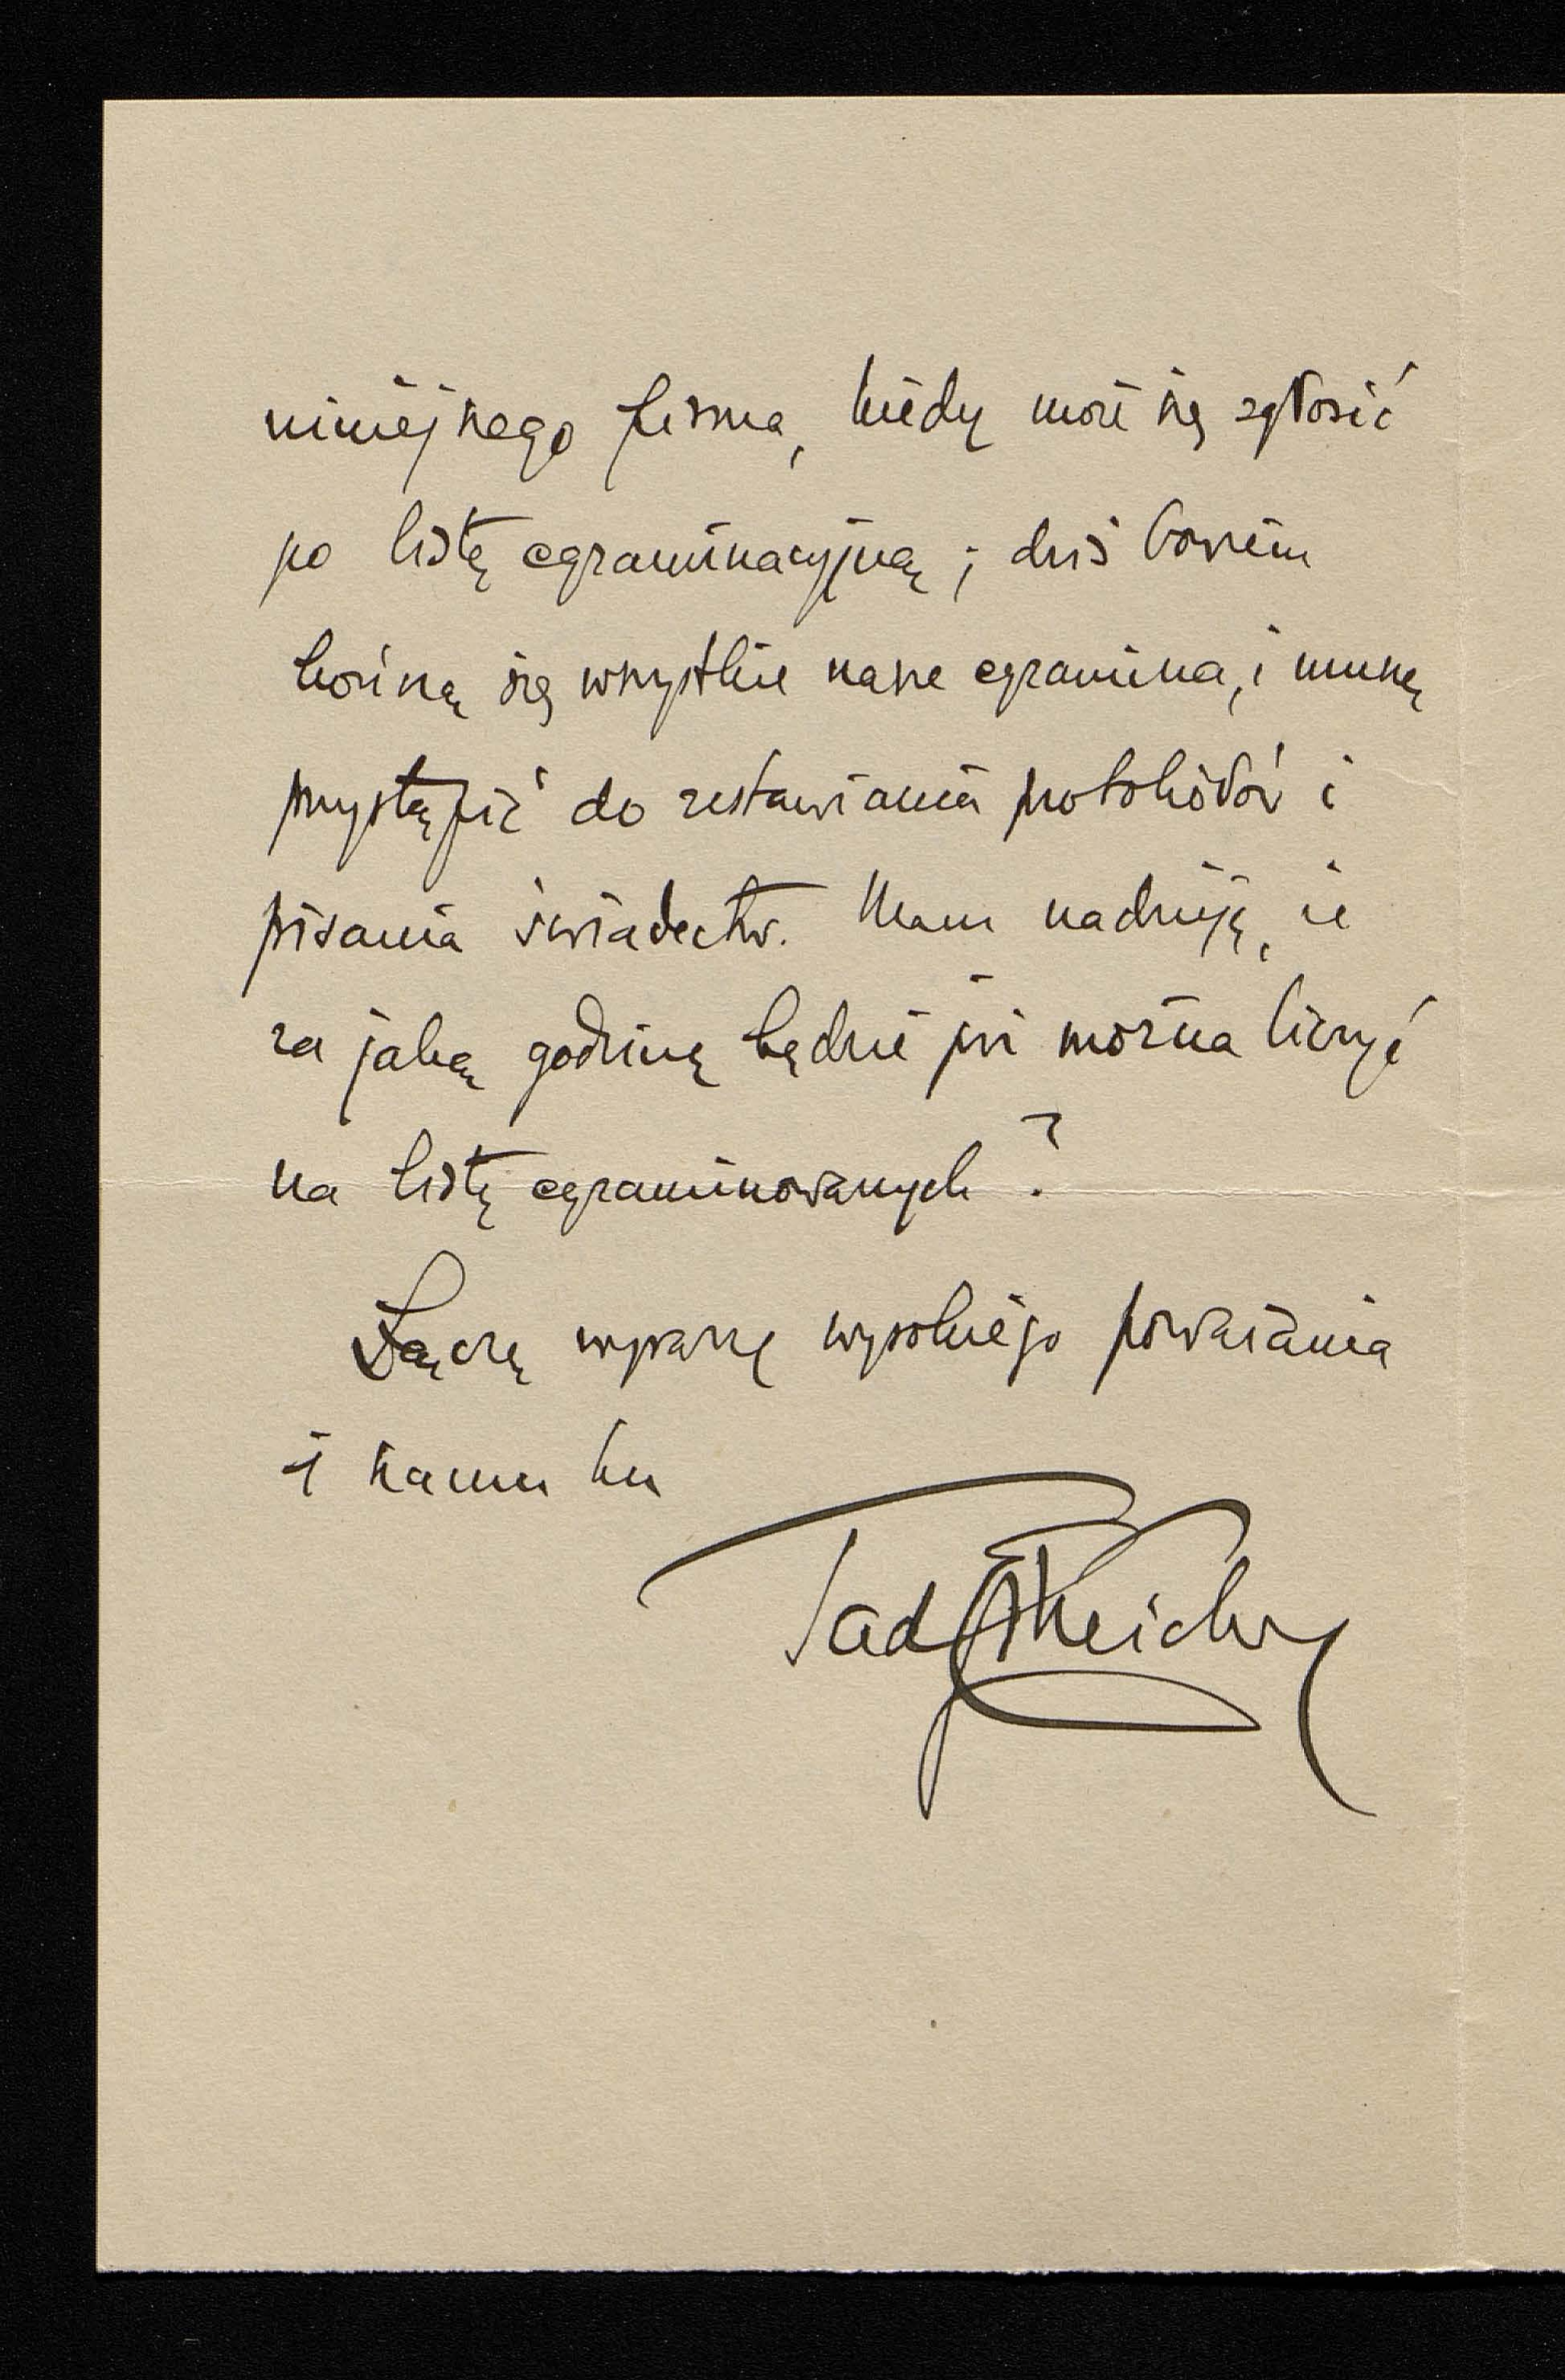 niniejszego pisma, kiedy może się zgłosić
po listę egzaminacyjną; dziś bowiem
kończą się wszystkie nasze egzamina, i muszę
przystąpić do zestawiania protokołów i
pisania świadectw. Mam nadzieję, że
za jaką godzinę będzie już można liczyć
na listę egzaminowanych?
Łączę wyrazy wysokiego poważania
i szacunku
Tad